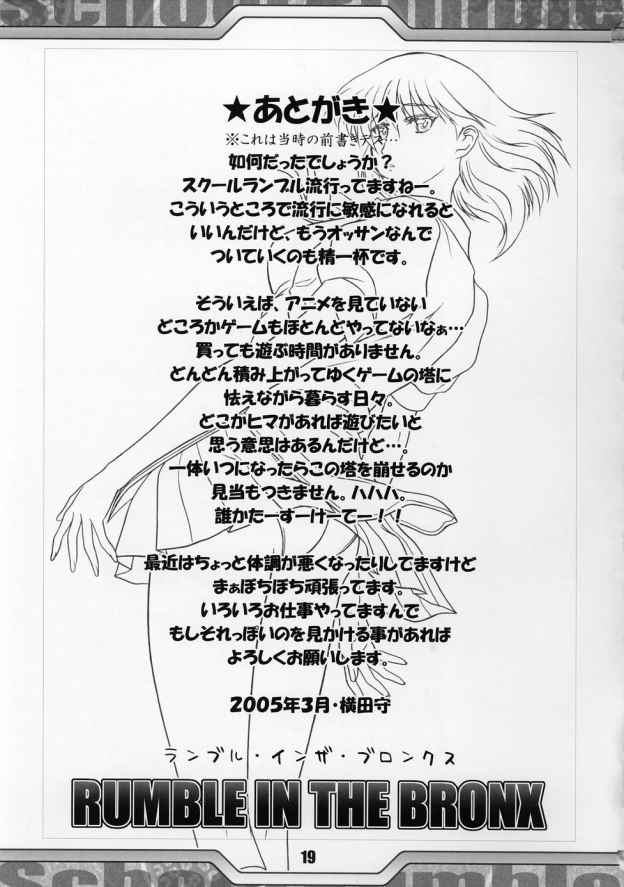 ★あとがき★
※これは当時の前書きデス…
如何だったでしょうか?
スクールランブル流行ってますねー。
こういうところで流行に敏感になれると
いいんだけど、もうオッサンなんで
ついていくのも精一杯です。
そういえば、アニメを見ていない
どころかゲームもほとんどやってないなぁ…
買っても遊ぶ時間がありません。
どんどん積み上がってゆくゲームの塔に
怯えながら暮らす日々。
どこかヒマがあれば遊びたいと
思う意思はあるんだけど…。
一体いつになったらこの塔を崩せるのか
見当もつきません。ハハハ。
誰かたーすーけーてー!!
最近はちょっと体調が悪くなったりしてますけど
まぁぼちぼち頑張ってます。
いろいろお仕事やってますんで
もしそれっぽいのを見かける事があれば
よろしくお願いします。
2005年3月・横田守
ランブル・インザ・ブロンクス
RUMBLE IN THE BRONX
19